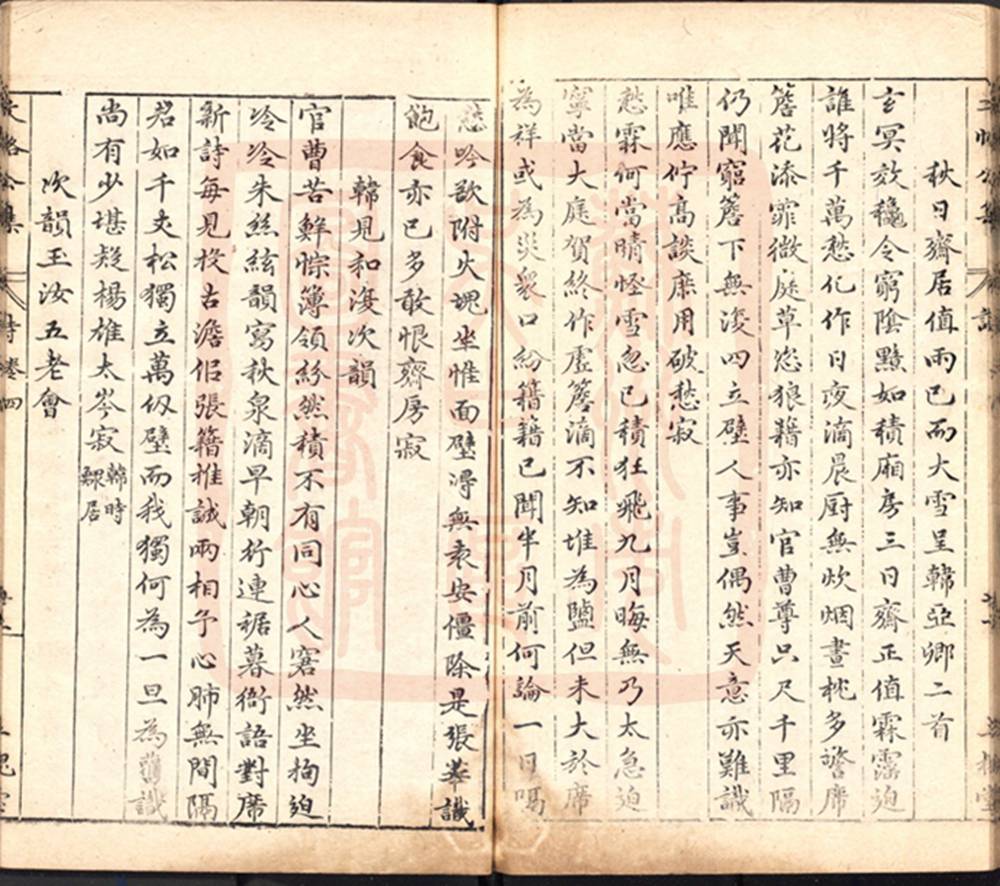 秋日齋居值雨已而大雪呈韓亞卿二首
玄冥效穐令窮陰黯如積廂房三日齋正值霖霪迫
誰將千萬愁化作日夜滴晨厨無炊烟晝枕多警席
簷花添霏微庭草恣狼籍亦知官曹尊只尺千里隔
仍聞窮簷下無復四立壁人事豈偶然天意亦難識
唯應佇高談庶用破愁寂
愁霖何當晴怪雪忽已積狂飛九月晦無乃太急迫
寧當大庭賀終作虛簷滴不知堆為鹽但未大於席
為祥或為災衆口紛籍籍已聞半月前何論一日嗝
愁吟欲附火塊坐惟面壁潯無袁安僵除是張華識
飽食亦已多敢恨齋房寂
韓見和復次韻
官曹苦鮮悰簿領紛然積不有同心人窘然坐拘迫
泠泠朱絲絃韻寫秋泉滴早朝行連裾暮衙語對席
新詩每見投古澹侣張籍推誠兩相予心肺無間隔
君如千丈松獨立萬仭壁而我獨何為一旦為
識
尚有少堪疑楊雄太岑寂韓時鰥居
次韻玉汝五老會